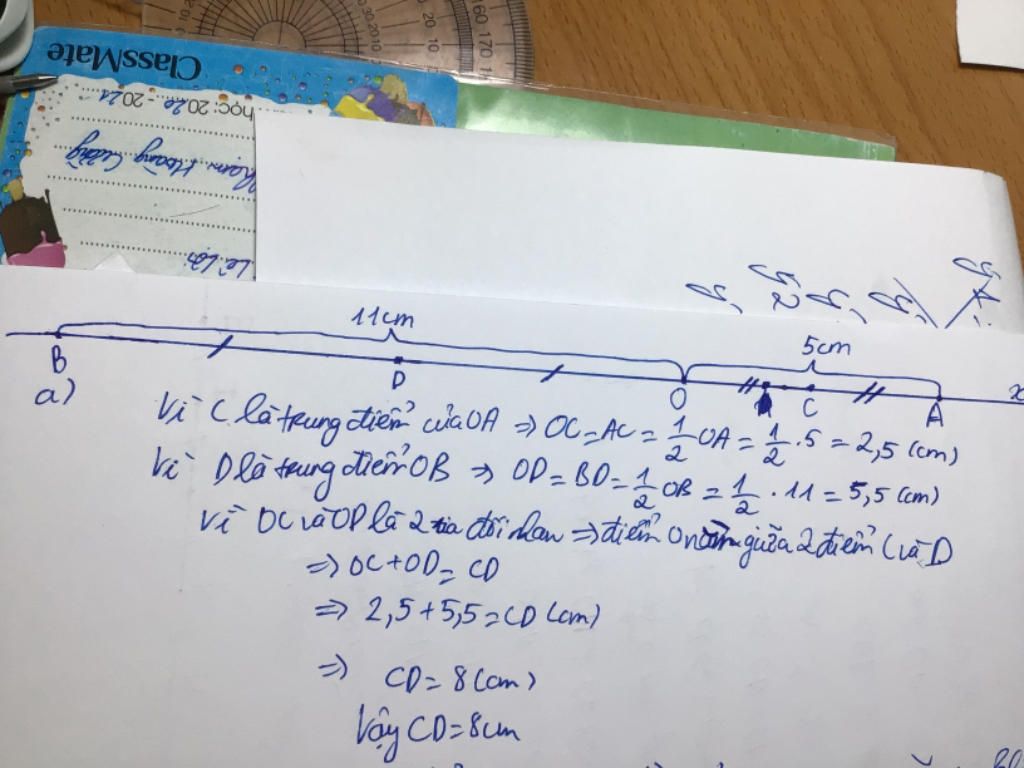 160 170
ClassMate
học: 2020 - 2021
Hoàng
Lê Lợi
11cm
5cm
B
D
O
C
A
x
a)
Vì C là trung điểm của OA ⇒ OC = AC = 1/2 OA = 1/2 . 5 = 2,5 (cm)
Vì D là trung điểm OB ⇒ OD = BD = 1/2 OB = 1/2 . 11 = 5,5 (cm)
Vì OC và OD là 2 tia đối nhau ⇒ điểm O nằm giữa 2 điểm C và D
⇒ OC + OD = CD
⇒ 2,5 + 5,5 = CD (cm)
⇒ CD = 8 (cm)
Vậy CD = 8cm